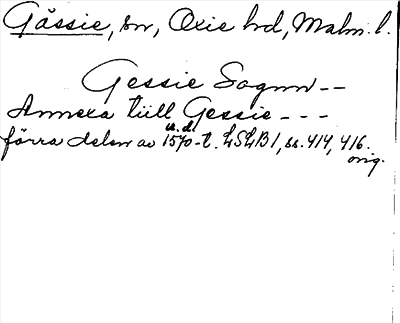 Gåssie, sn, Oxie hd, Malm. l.
Gessie Sognn --
Annexa tiill Gessie - - -
u.d.
förra delen av 1570-t. LSLB1, ss. 414, 416.
orig.